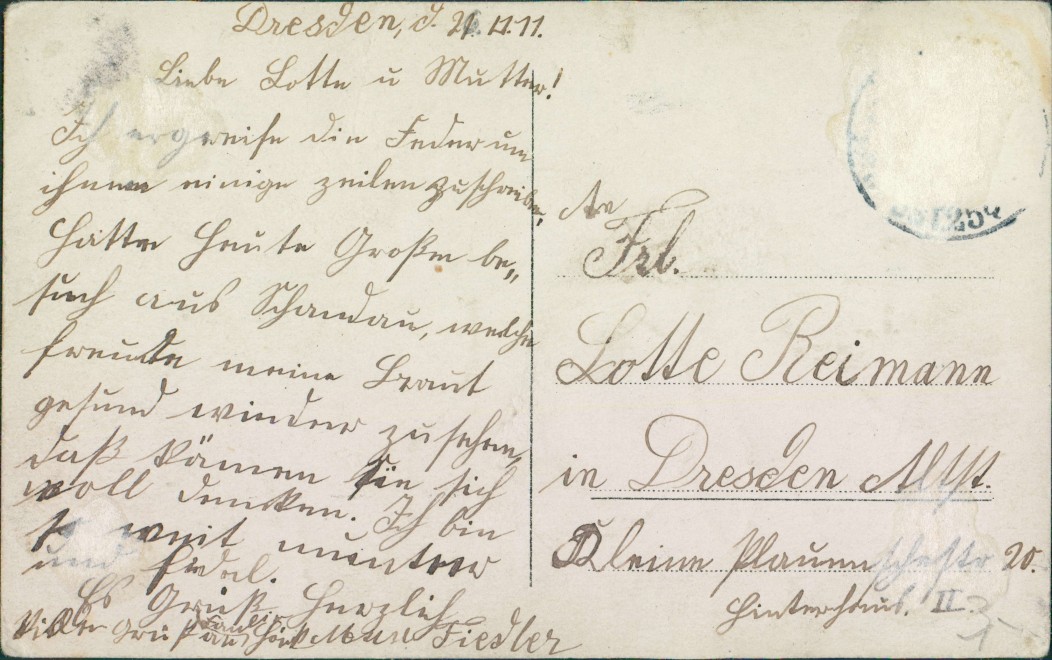 Dresden, d. 21. 11. 11.
Liebe Lotte u Mutter!
Ich ergreife die Feder um
ihnen einige zeilen zuschreiben,
Hatte Heute Großen be„
such aus Schandau, welche
freude meine Braut
gesund wieder zusehen,
daß kömen Sie sich
woll denken. Ich bin
so weit munter
und fidel.
Es Grüßt Herzlich
Fiedler
An
Frl.
Lotte Reimann
in Dresden Altst.
Kleine Plauenschestr 20.
Hinterhaus. II.